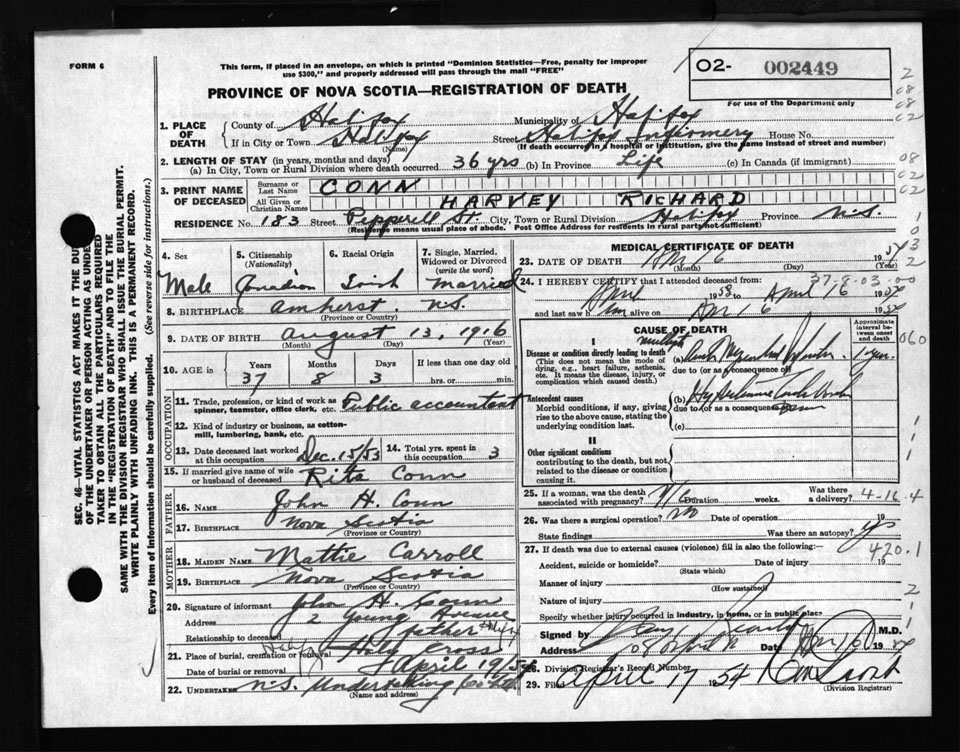 FORM 6
This form, if placed in an envelope, on which is printed "Dominion Statistics—Free, penalty for improper
use $300," and properly addressed will pass through the mail "FREE"
O2- 002449
PROVINCE OF NOVA SCOTIA—REGISTRATION OF DEATH
For use of the Department only
2
08
08
02
1. PLACE OF DEATH
County of Halifax Municipality of Halifax
If in City or Town Halifax Street Halifax Infirmary House No.
(Name) (If death occurred in a hospital or institution, give the name instead of street and number)
2. LENGTH OF STAY (in years, months and days)
(a) In City, Town or Rural Division where death occurred 36 yrs (b) In Province Life (c) In Canada (if immigrant)
3. PRINT NAME OF DECEASED
Surname or Last Name CONN
All Given or Christian Names HARVEY RICHARD
RESIDENCE No. 183 Street Pepperell St. City, Town or Rural Division Halifax Province N.S.
(Residence means usual place of abode. Post Office Address for residents in rural parts not sufficient)
SEC. 46—VITAL STATISTICS ACT MAKES IT THE DU
OF THE UNDERTAKER OR PERSON ACTING AS UNDE
TAKER TO OBTAIN ALL THE PARTICULARS REQUIRED
IN THE "REGISTRATION OF DEATH" AND TO FILE THE
SAME WITH THE DIVISION REGISTRAR WHO SHALL ISSUE THE BURIAL PERMIT.
WRITE PLAINLY WITH UNFADING INK. THIS IS A PERMANENT RECORD.
Every item of information should be carefully supplied. (See reverse side for instructions.)
4. Sex Male
5. Citizenship (Nationality) Canadian
6. Racial Origin Irish
7. Single, Married, Widowed or Divorced (write the word) Married
8. BIRTHPLACE Amherst N.S.
(Province or Country)
9. DATE OF BIRTH August 13, 1916
(Month) (Day) (Year)
10. AGE in Years 37 Months 8 Days 3 If less than one day old hrs. or min.
OCCUPATION
11. Trade, profession, or kind of work as spinner, teamster, office clerk, etc. Public accountant
12. Kind of industry or business, as cotton-mill, lumbering, bank, etc.
13. Date deceased last worked at this occupation Dec. 15/53
14. Total yrs. spent in this occupation 3
15. If married give name of wife or husband of deceased Rita Conn
FATHER
16. Name John H. Conn
17. Birthplace Nova Scotia
(Province or Country)
MOTHER
18. MAIDEN NAME Mattie Carroll
19. BIRTHPLACE Nova Scotia
(Province or Country)
20. Signature of informant John H. Conn
Address 2 Young Avenue
Relationship to deceased father
21. Place of burial, cremation or removal Holy Cross
Date of burial or removal April 19/54
22. UNDERTAKER N.S. Undertaking Co Ltd
(Name and address)
MEDICAL CERTIFICATE OF DEATH
23. DATE OF DEATH 16 1954
(Month) (Day) (Year)
24. I HEREBY CERTIFY that I attended deceased from:
37-8-03
April 1953 to April 16 1954
and last saw him alive on 16 1954
CAUSE OF DEATH
Approximate interval between onset and death
I
Disease or condition directly leading to death
(This does not mean the mode of dying, e.g., heart failure, asthenia, etc. It means the disease, injury, or complication which caused death.)
(a)
due to (or as a consequence of)
Antecedent causes
Morbid conditions, if any, giving rise to the above cause, stating the underlying condition last.
(b)
due to (or as a consequence of)
(c)
II
Other significant conditions
contributing to the death, but not related to the disease or condition causing it.
25. If a woman, was the death associated with pregnancy? Duration weeks. Was there a delivery?
4-16-4
26. Was there a surgical operation? no Date of operation 19
State findings Was there an autopsy? yes
27. If death was due to external causes (violence) fill in also the following:—
420.1
Accident, suicide or homicide? Date of injury 19
(State which)
Manner of injury
(How sustained)
Nature of injury
Specify whether injury occurred in industry, in home, or in public place
Signed by M.D.
Address Date
28. Division Registrar's Record Number
29. Filed April 17 1954
(Division Registrar)